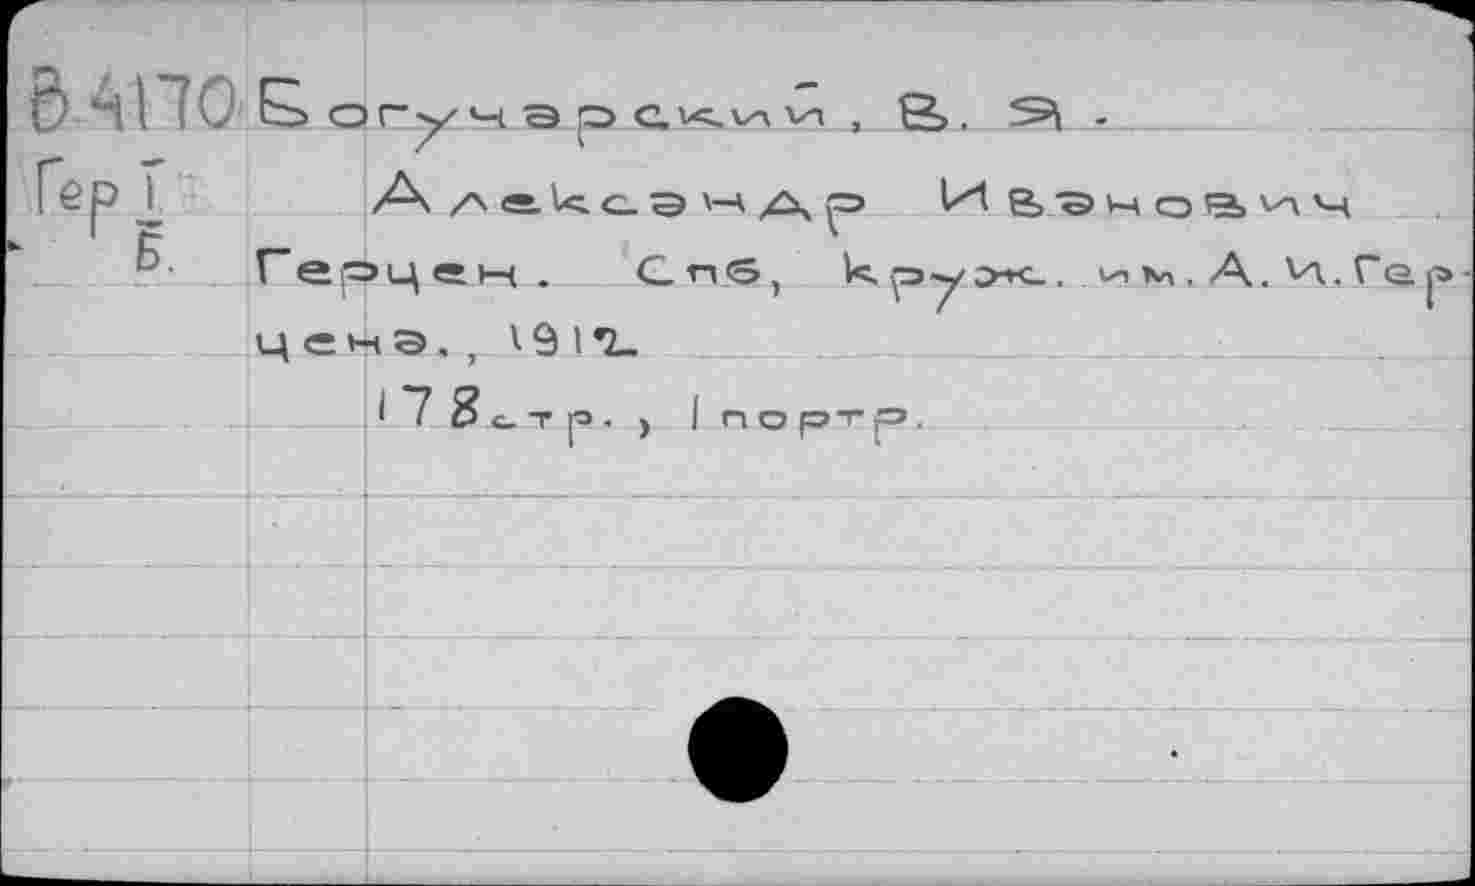 В 4170 Богучарский, В. Я.
Гер I Александр Иванович
Б. Герцен. Спб, круж. им. А. И. Гер-
цена., 1912
178 стр., 1 портр.